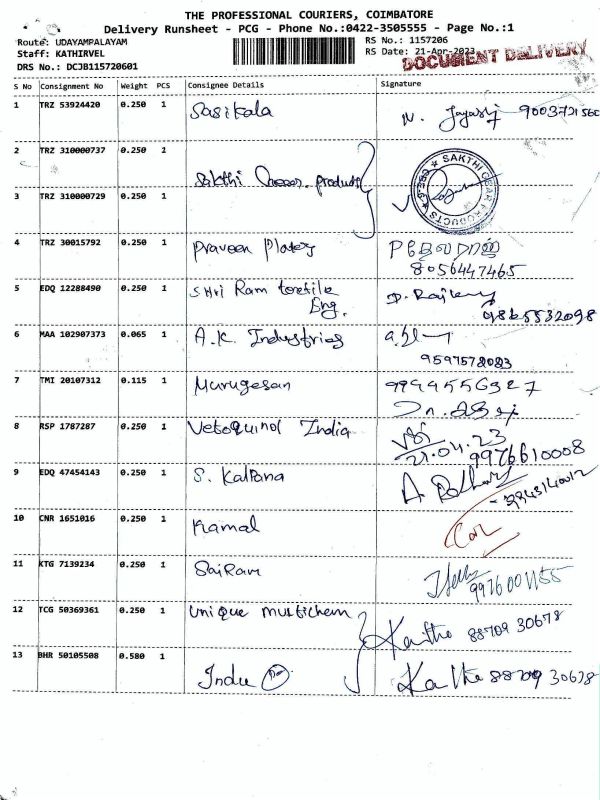 THE PROFESSIONAL COURIERS, COIMBATORE
Delivery Runsheet - PCG - Phone No.:0422-3505555 - Page No.:1
Route: UDAYAMPALAYAM
RS No.: 1157206
Staff: KATHIRVEL
RS Date: 21-Apr-2023
DOCUMENT DELIVERY
DRS No.: DCJB115720601
S No Consignment No Weight PCS Consignee Details Signature
1 TRZ 53924420 0.250 1 Sasikala N. Jayasri
2 TRZ 310000737 0.250 1
Sakthi Gear products
SAKTHI GEAR PRODUCTS
3 TRZ 310000729 0.250 1
4 TRZ 30015792 0.250 1 Praveen Plates
8056447465
5 EDQ 12288490 0.250 1 SHri Ram textile
Eng.
9865532098
6 MAA 102907373 0.065 1 A.K. Industries
7 TMI 20107312 0.115 1 Murugesan 9994556327
8 RSP 1787287 0.250 1 Vetoquinol India
21.04.23
9976610008
9 EDQ 47454143 0.250 1 S. Kalpana
10 CNR 1651016 0.250 1 Kamal
11 KTG 7139234 0.250 1 SaiRam
9976001155
12 TCG 50369361 0.250 1 Unique Multichem
88709 30678
13 BHR 50105508 0.580 1
Indu 88709 30678